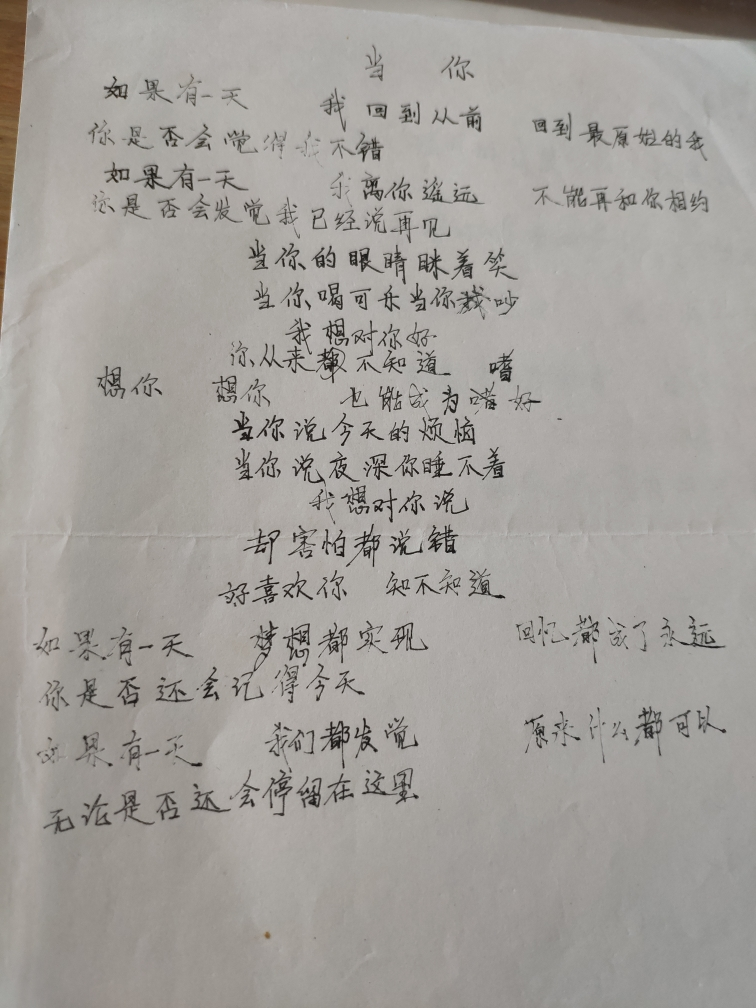 当 你
如果有一天 我回到从前 回到最原始的我
你是否会觉得我不错
如果有一天 我离你遥远 不能再和你相约
你是否会发觉我已经说再见
当你的眼睛眯着笑
当你喝可乐当你吵
我想对你好
你从来都不知道 嗜
想你 想你 也能成为嗜好
当你说今天的烦恼
当你说夜深你睡不着
我想对你说
却害怕都说错
好喜欢你 知不知道
如果有一天 梦想都实现 回忆都成了永远
你是否还会记得今天
如果有一天 我们都发觉 原来什么都可以
无论是否还会停留在这里